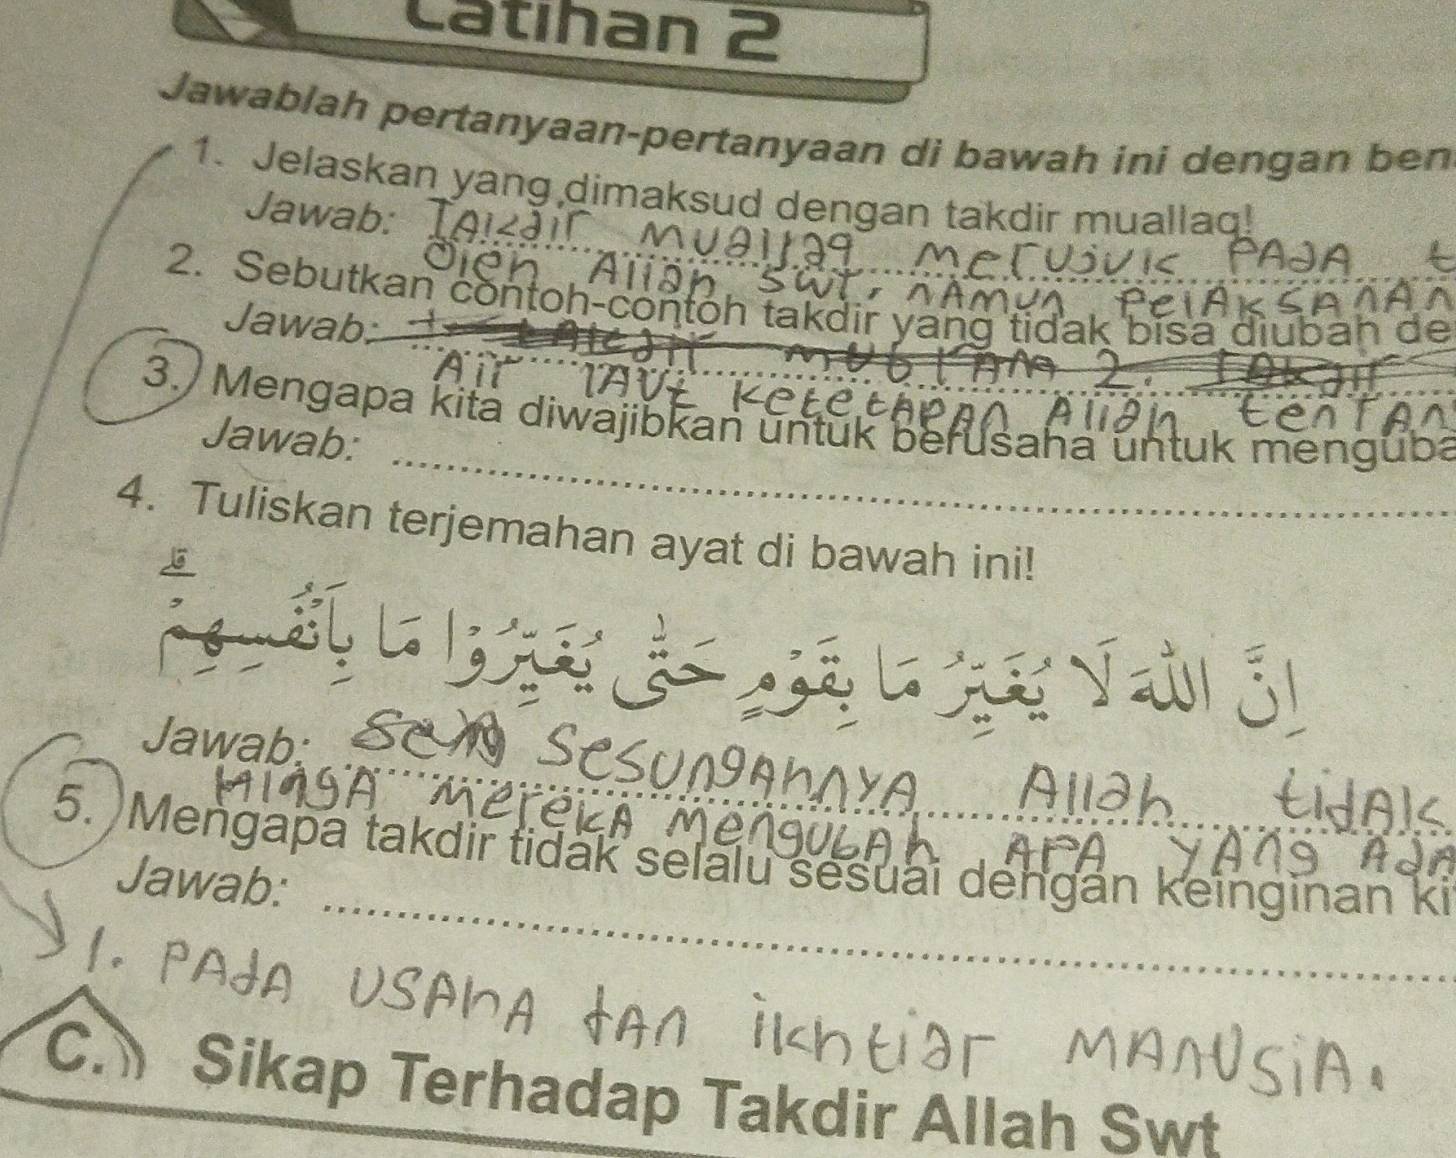 Latihan 2
Jawablah pertanyaan-pertanyaan di bawah ini dengan ben
1. Jelaskan yang dimaksud dengan takdir muallaq!
Jawab: TAKdir MUallag MerUJUK PAdA t
Oleh Allah swt, nAMUn PelAKSAnAn
2. Sebutkan contoh-contoh takdir yang tidak bisa diubah de
Jawab:
Air lAUt KetetAPAn Allah tentAn
3. Mengapa kita diwajibkan untuk berusaha untuk menguba
Jawab:
4. Tuliskan terjemahan ayat di bawah ini!
اِنَّ اللّٰهَ لَا يُغَيِّرُ مَا بِقَوْمٍ حَتّٰى يُغَيِّرُوْا مَا بِاَنْفُسِهِمْ ۗ
Jawab: SesUngAhnYA Allah tidAK
HinggA MereKA MengUbAh APA YAng AdA
5. Mengapa takdir tidak selalu sesuai dengan keinginan ki
Jawab:
1. PAdA USAhA dAn ikhtiar MAnUSiA.
C. Sikap Terhadap Takdir Allah Swt